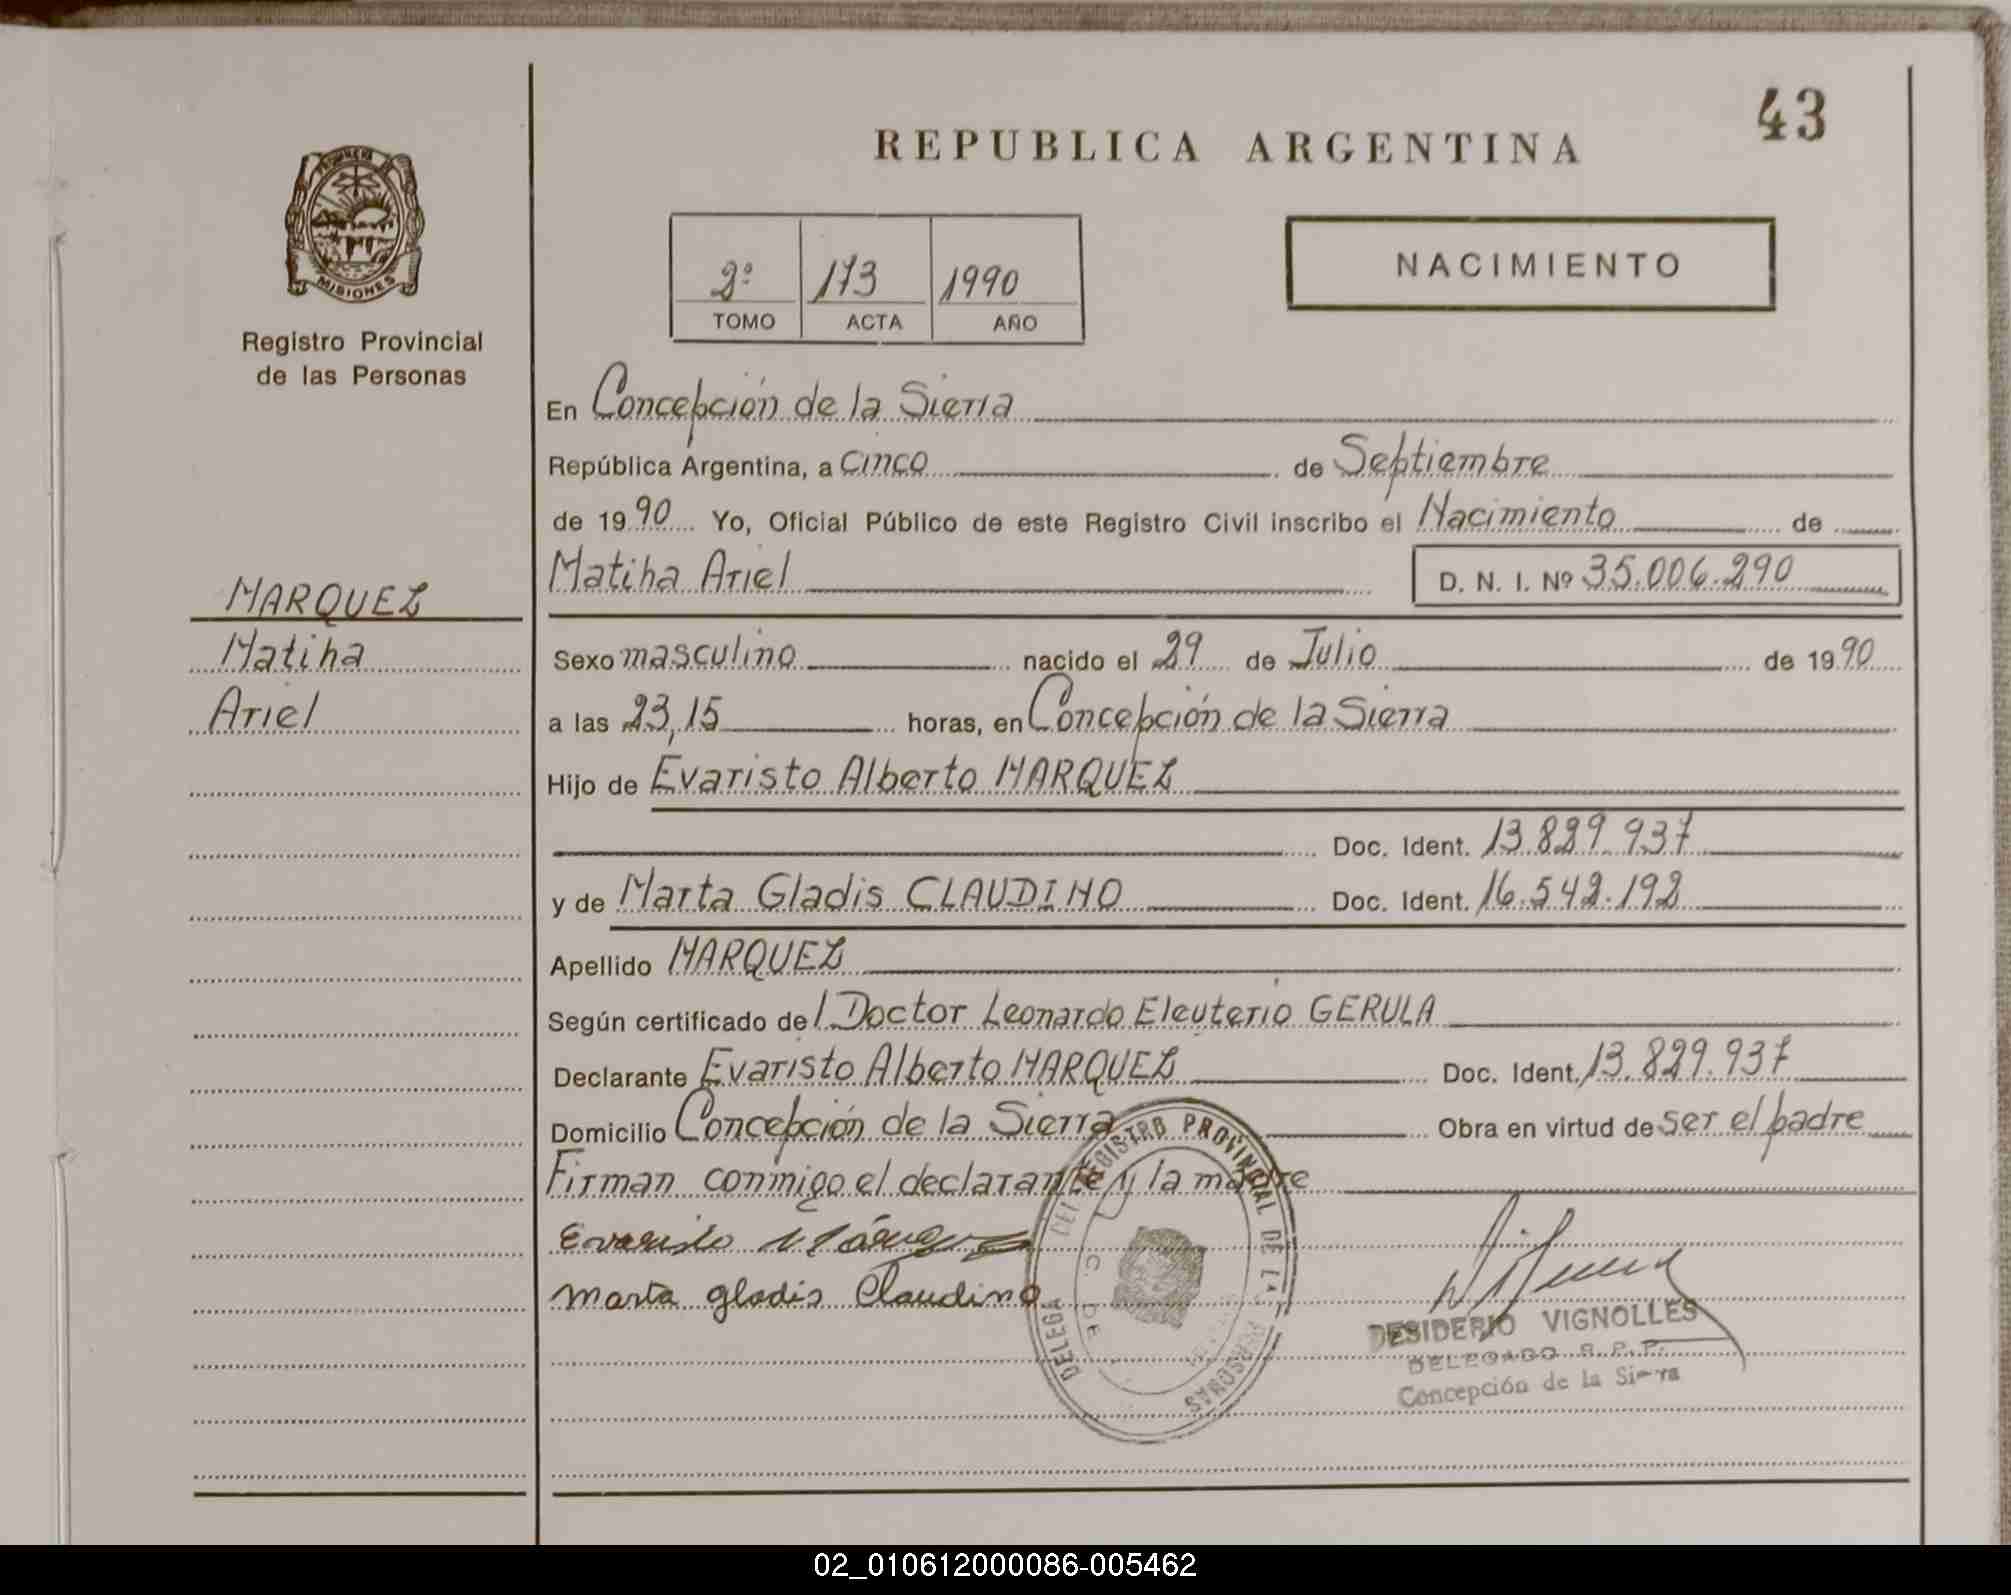 43
REPUBLICA ARGENTINA
PROVINCIA
MISIONES
Registro Provincial
de las Personas
2º 173 1990
TOMO ACTA AÑO
NACIMIENTO
En Concepción de la Sierra
República Argentina, a cinco de Septiembre
de 1990 Yo, Oficial Público de este Registro Civil inscribo el Nacimiento de
Matiha Ariel D. N. I. Nº 35.006.290
MARQUEZ
Matiha
Ariel
Sexo masculino nacido el 29 de Julio de 1990
a las 23,15 horas, en Concepción de la Sierra
Hijo de Evaristo Alberto MARQUEZ
Doc. Ident. 13.829.937
y de Marta Gladis CLAUDINO Doc. Ident. 16.542.192
Apellido MARQUEZ
Según certificado del Doctor Leonardo Eleuterio GERULA
Declarante Evaristo Alberto MARQUEZ Doc. Ident. 13.829.937
Domicilio Concepción de la Sierra Obra en virtud de ser el padre
Firman conmigo el declarante y la madre
Evaristo Márquez
Marta gladis Claudino
REGISTRO PROVINCIAL DE LAS PERSONAS
DESIDERIO VIGNOLLES
DELEGADO R. P. P.
Concepción de la Sierra
02_010612000086-005462